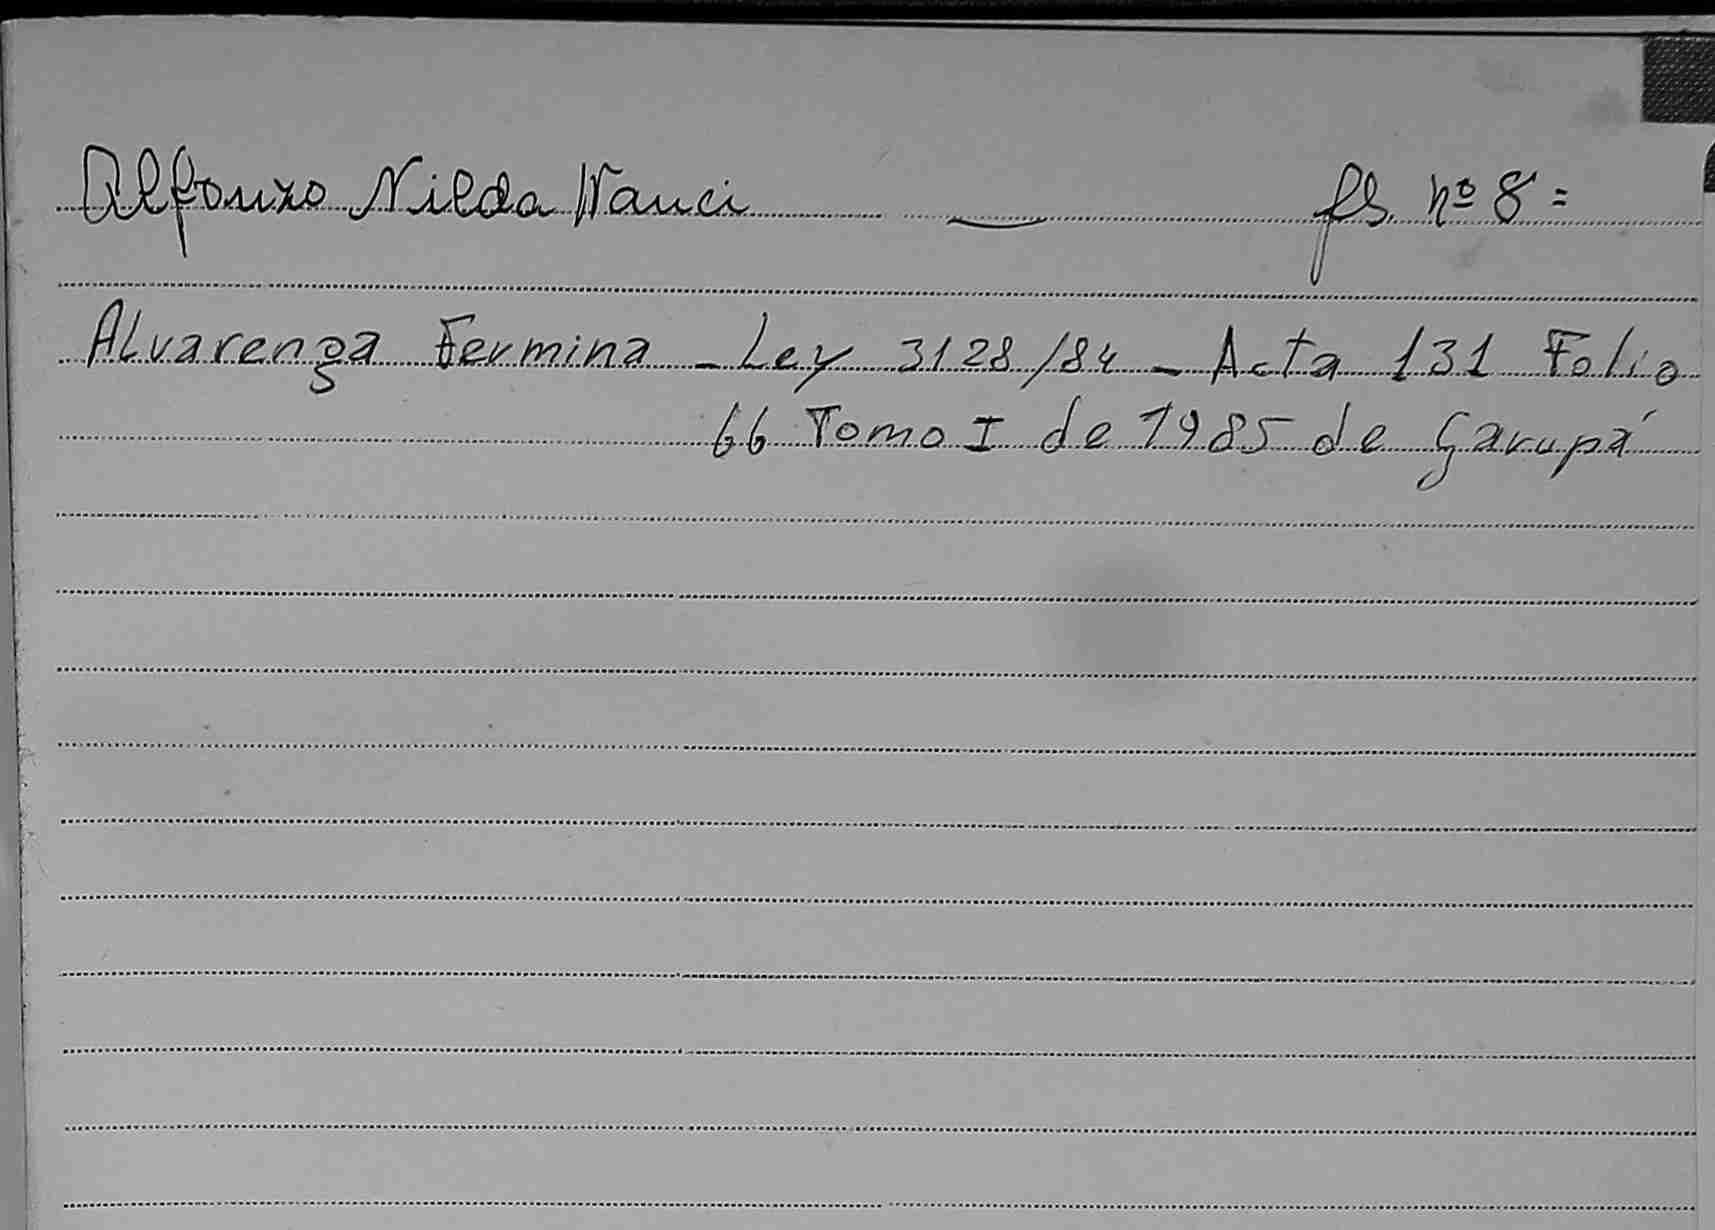 Alfonzo Nilda Nanci — fs. nº 8=
Alvarenga Fermina - Ley 3128/84 - Acta 131 Folio
66 Tomo I de 1985 de Garupá